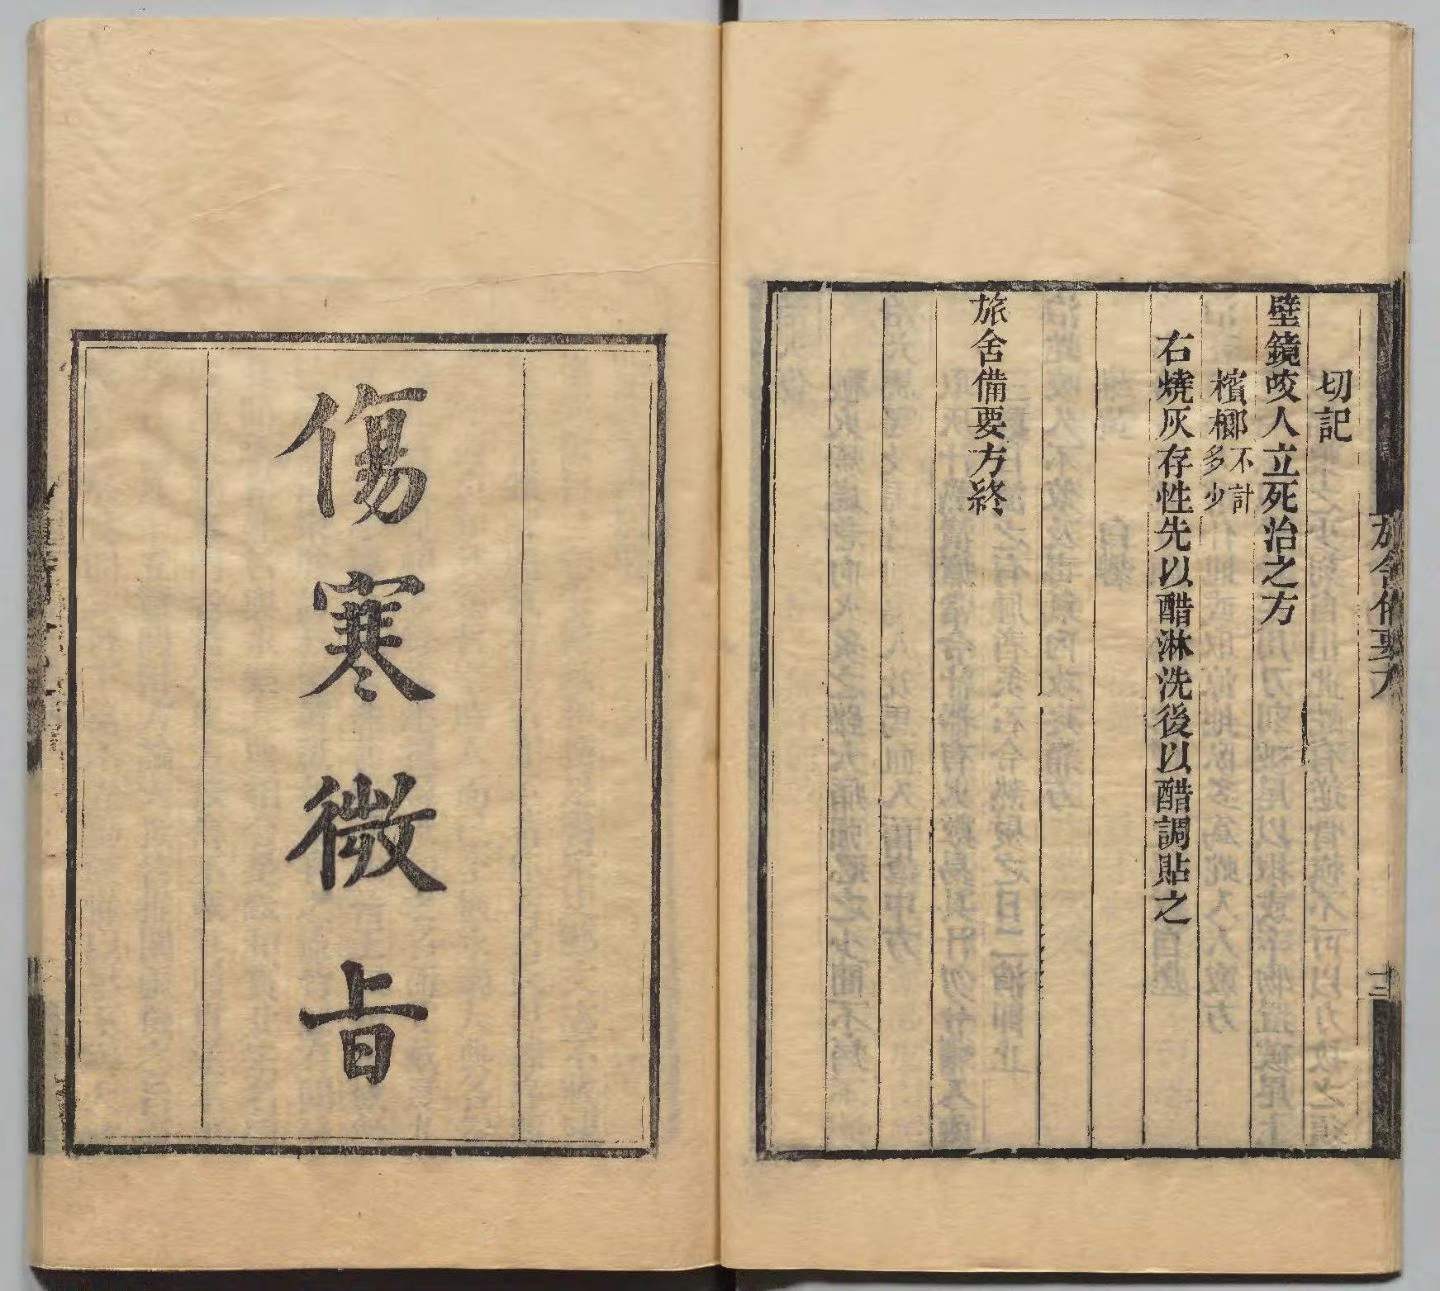 切記
壁鏡咬人立死治之方
檳榔不計多少
右燒灰存性先以醋淋洗後以醋調貼之
旅舍備要方終
傷寒微旨